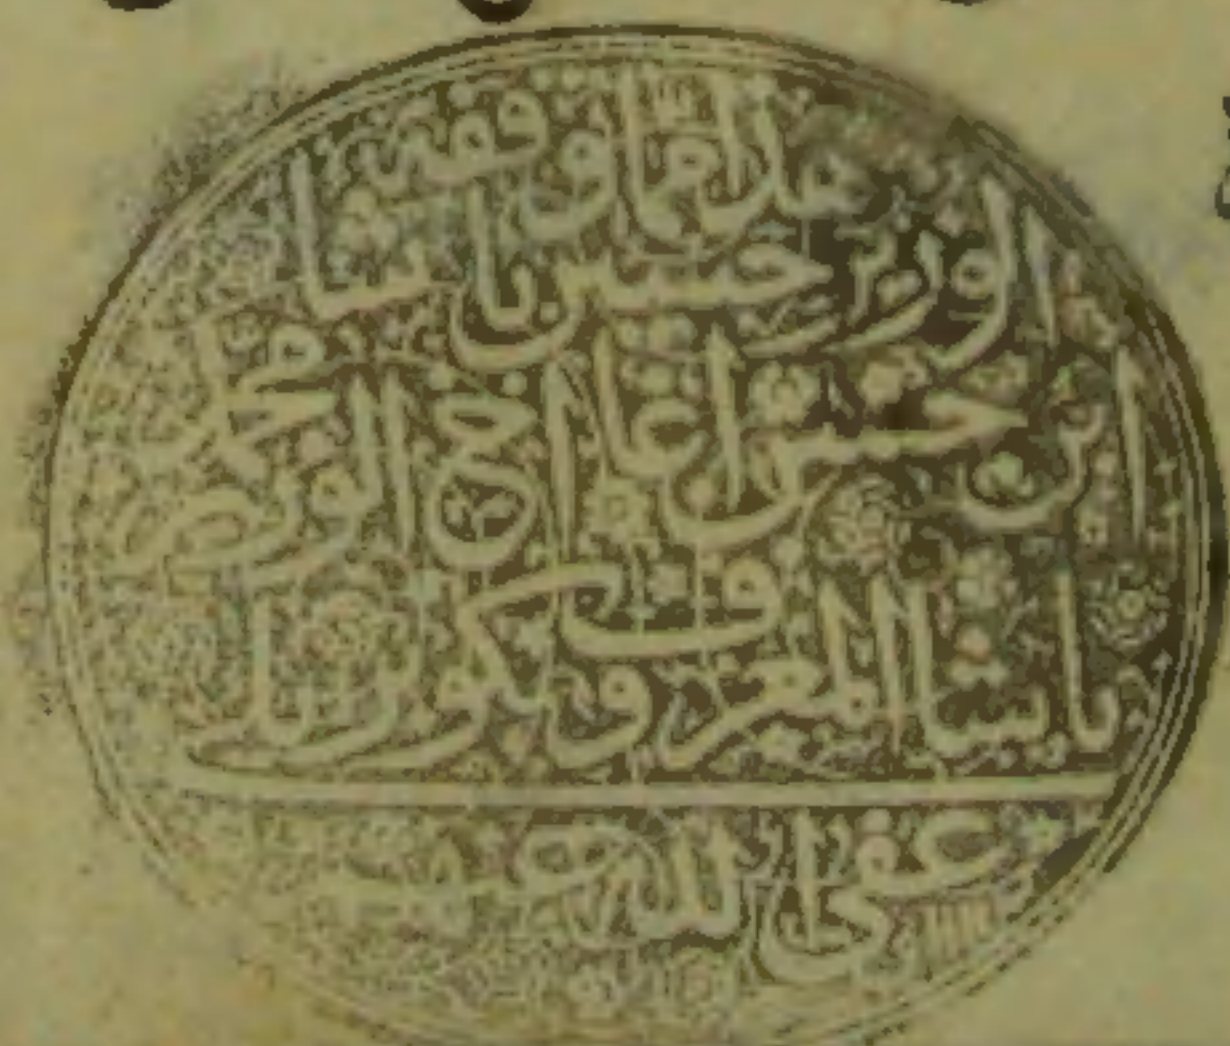 هذا مما وقفه
الوزير حسين باشا
ابن حسن اغا اخ الوزير محمد
باشا المعروف بكوپريلى
عفى الله عنهما